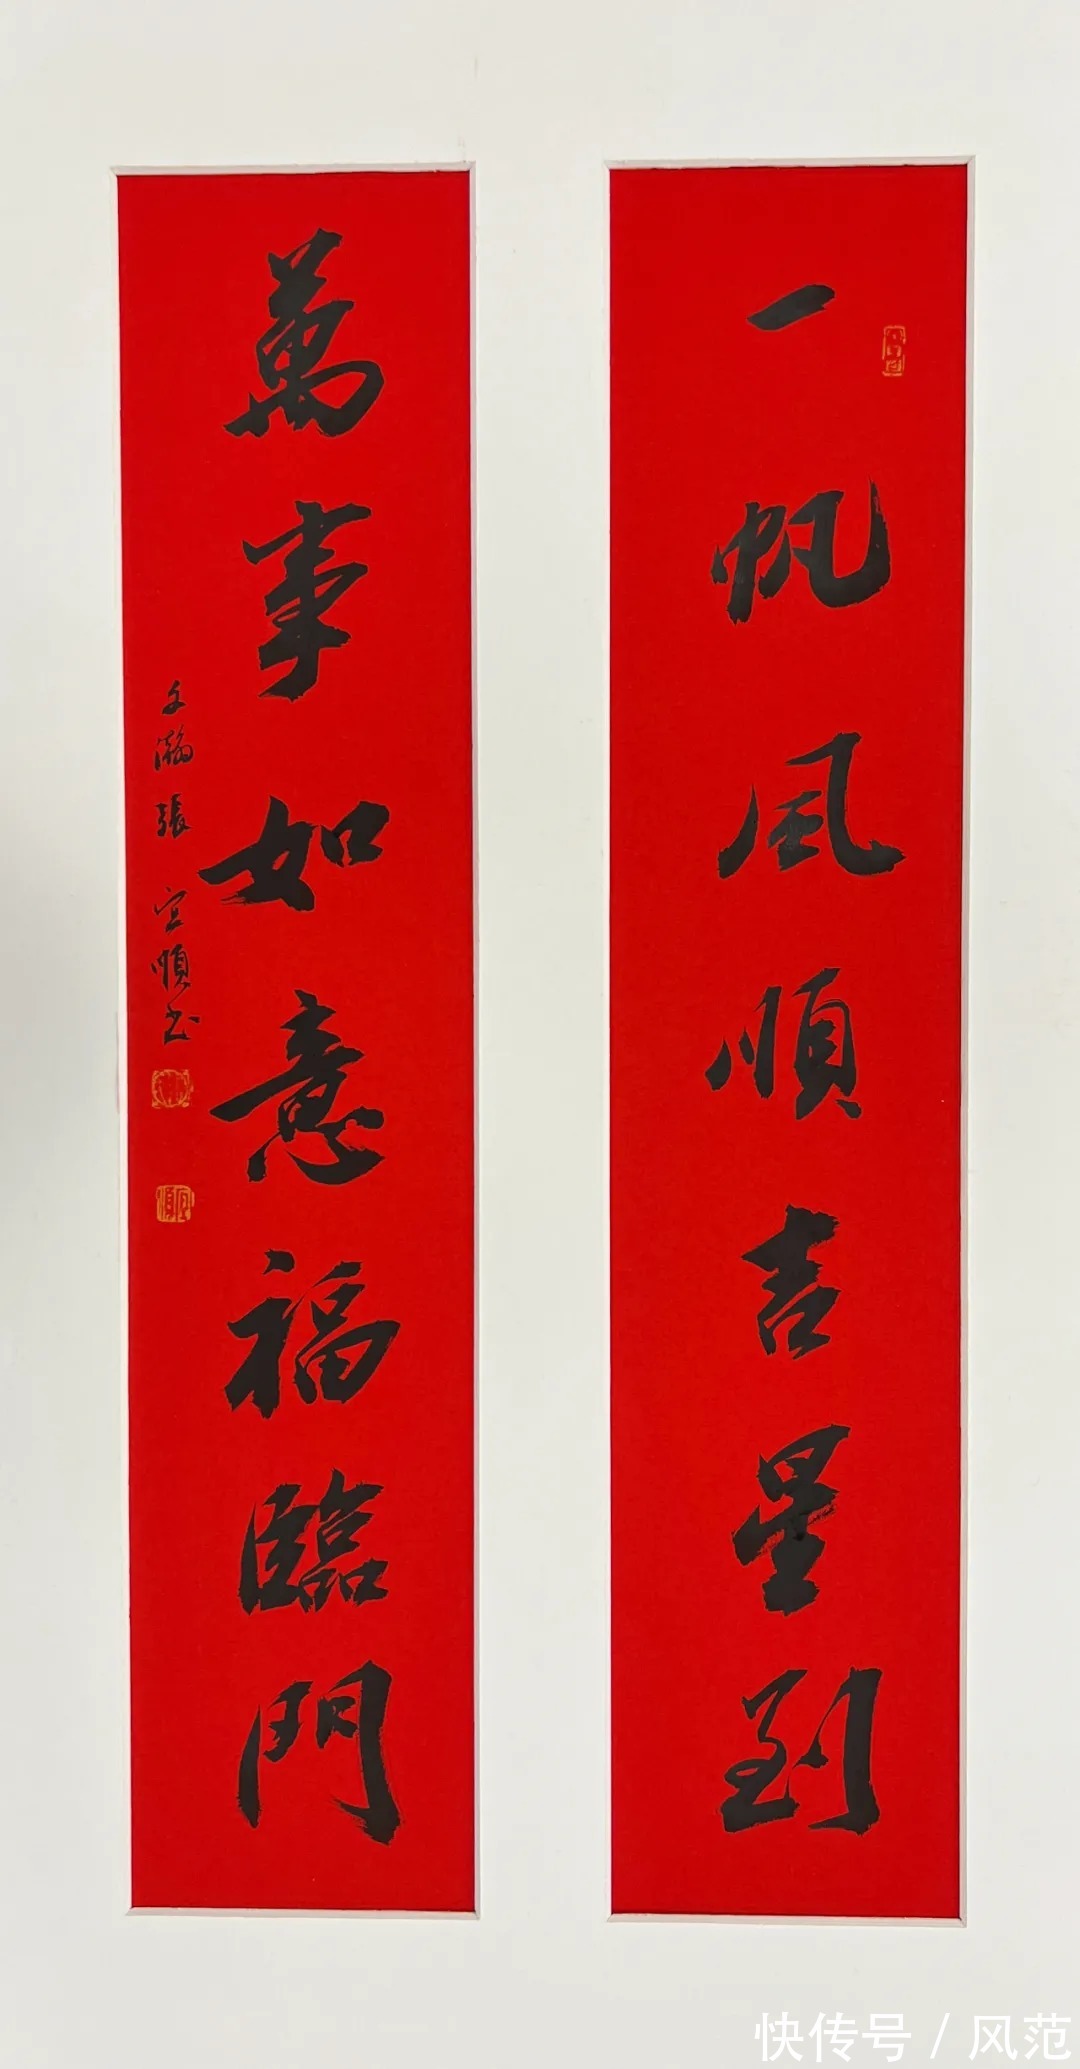 一帆風順吉星到
萬事如意福臨門
子瀚張宜順书
宜順
快传号 / 风范